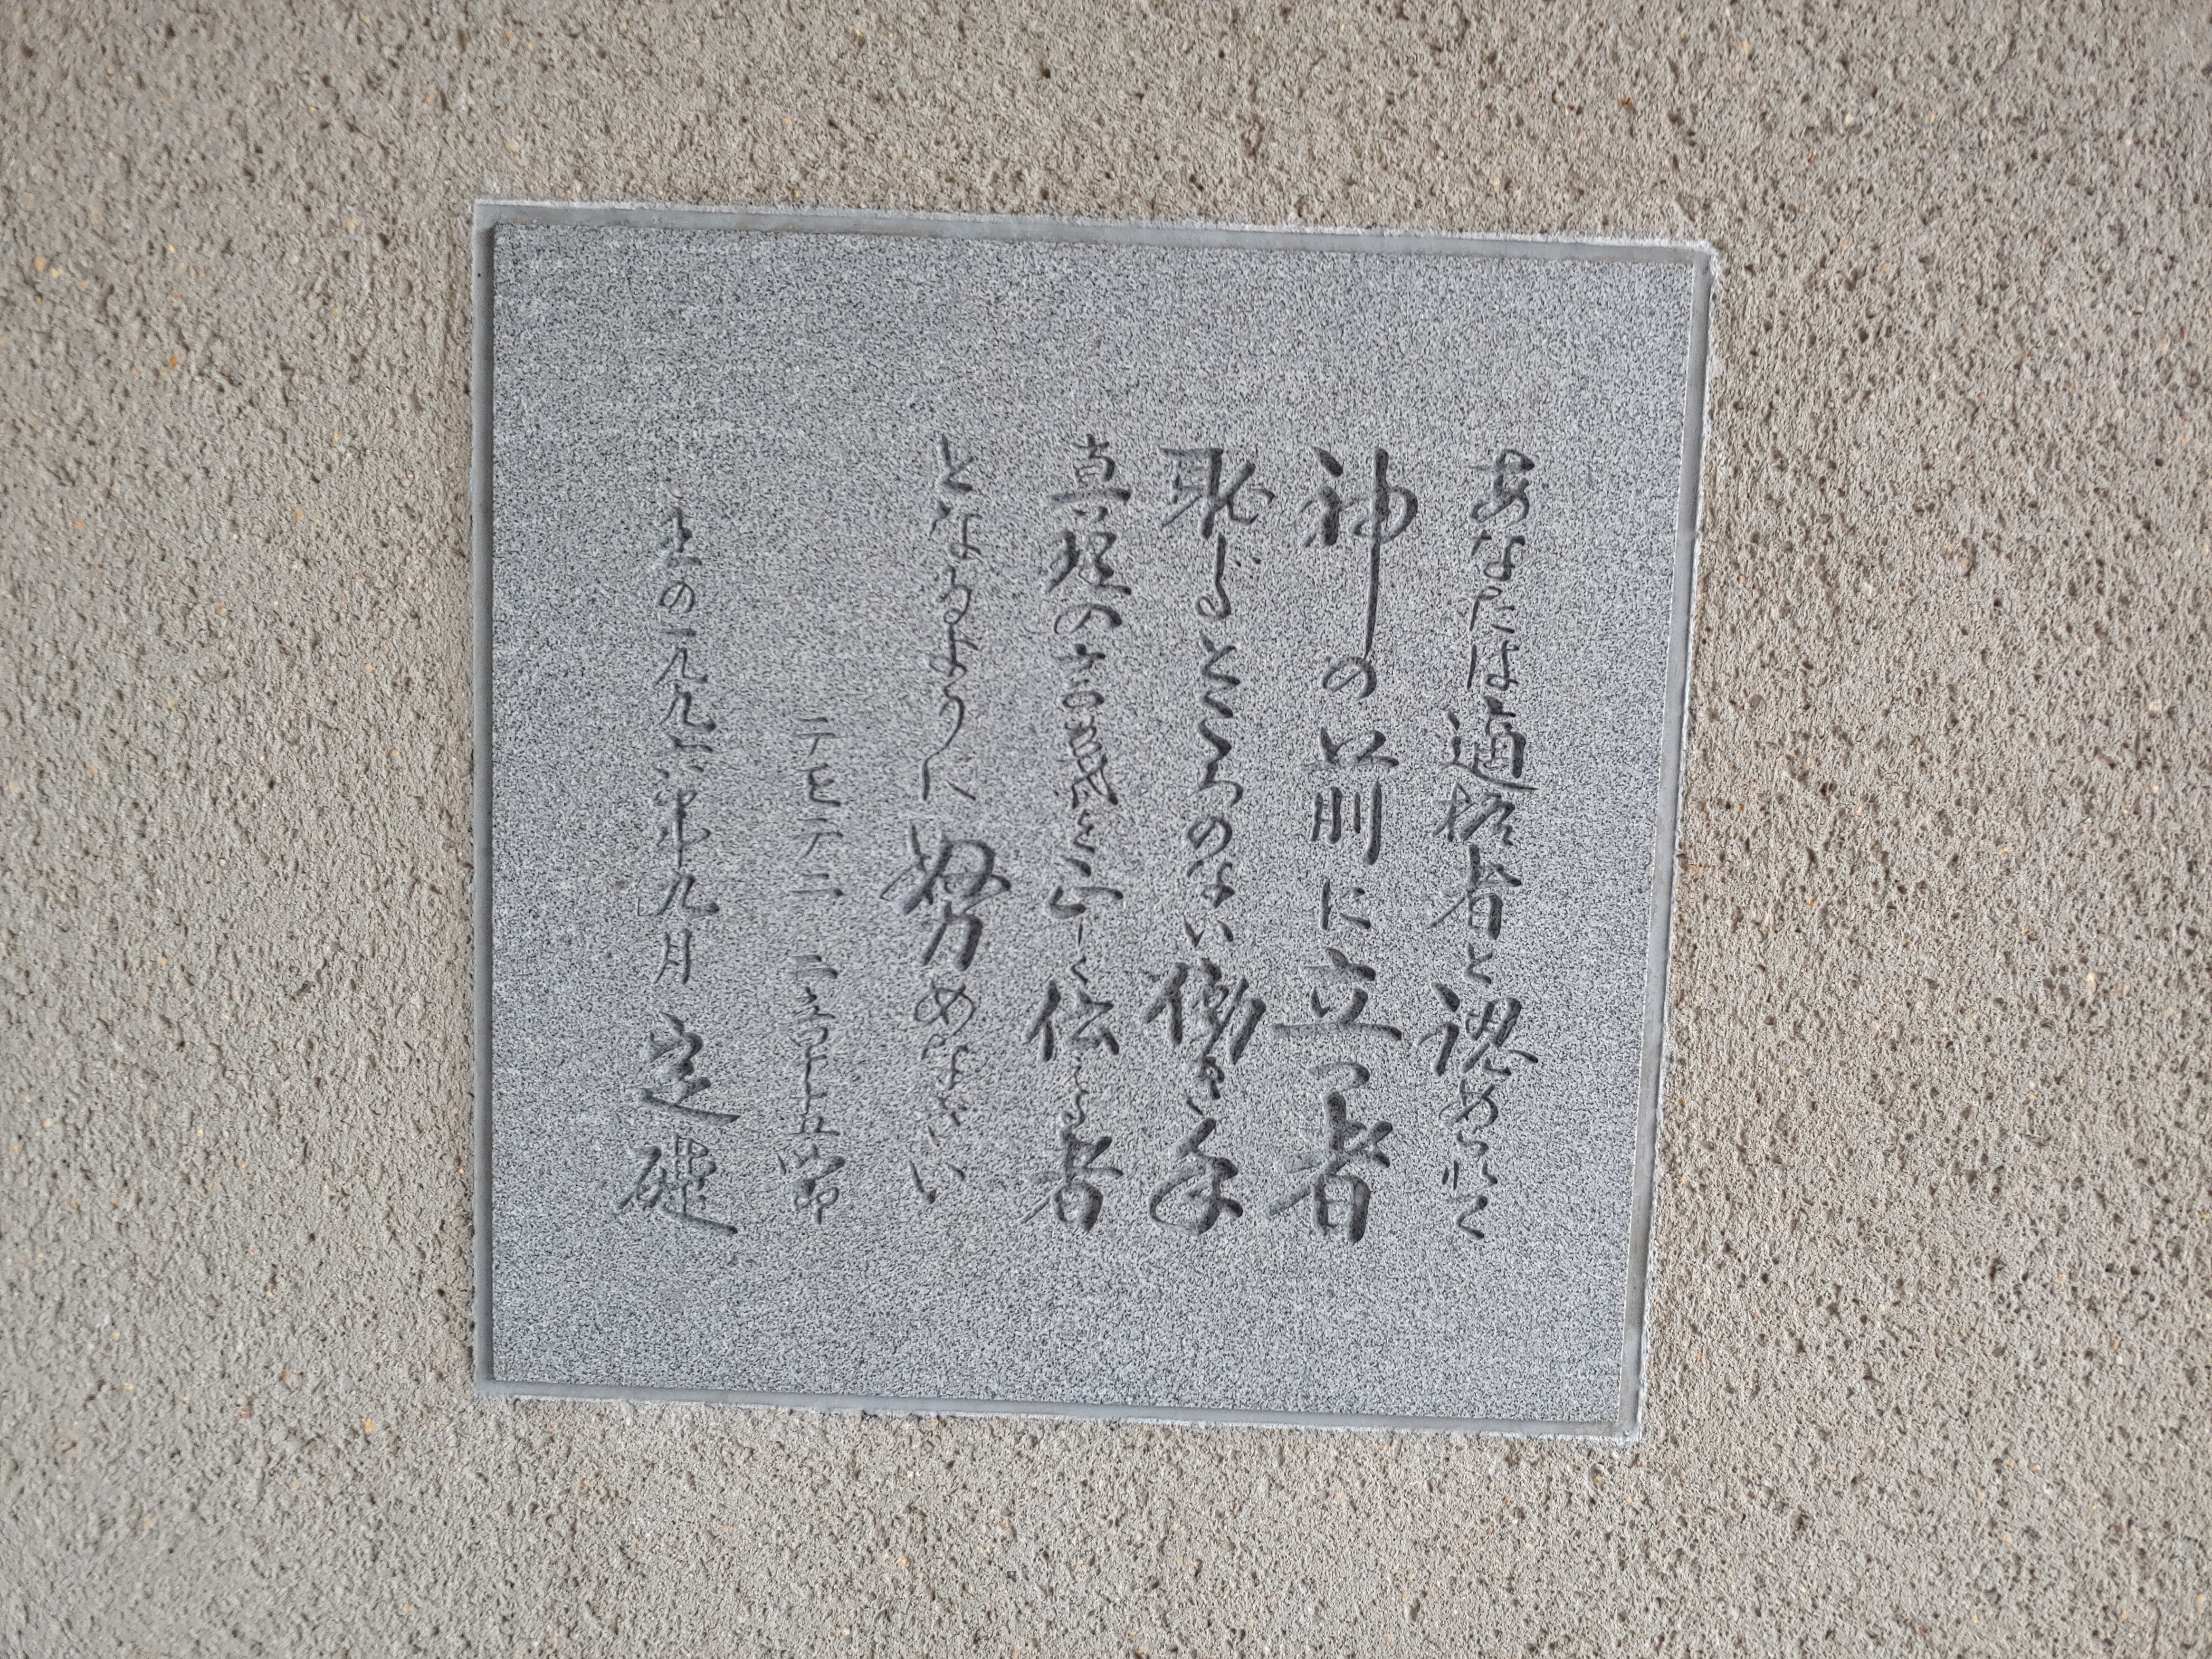 あなたは適格者と認められて
神の前に立つ者
恥じるところのない働き手
真理の言葉を正しく伝える者
となるように努めなさい
テモテ二 二章十五節
主の一九九六年九月 定礎